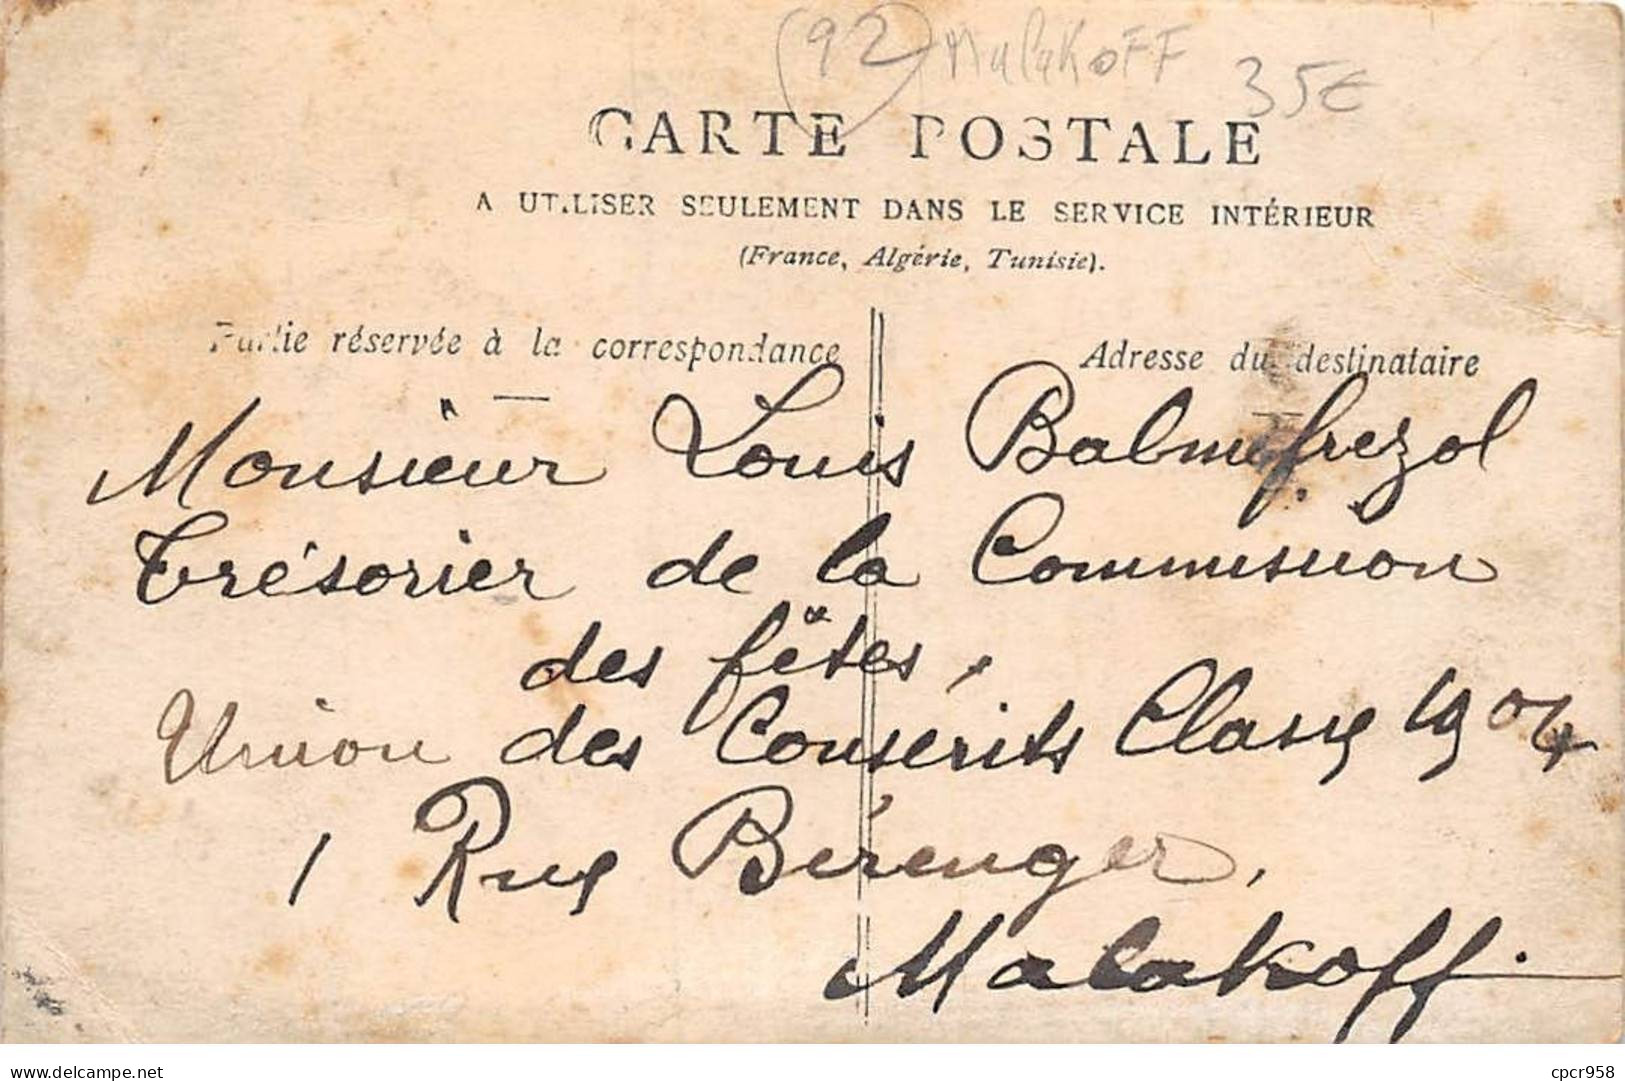 (92) Malakoff 35€
CARTE POSTALE
A UTILISER SEULEMENT DANS LE SERVICE INTÉRIEUR
(France, Algérie, Tunisie).
Partie réservée à la correspondance
Adresse du destinataire
Monsieur Louis Balmefrezol
Trésorier de la Commission
des fêtes,
Union des Conscrits Classe 1904
1 Rue Bérenger,
Malakoff.
cpcr958